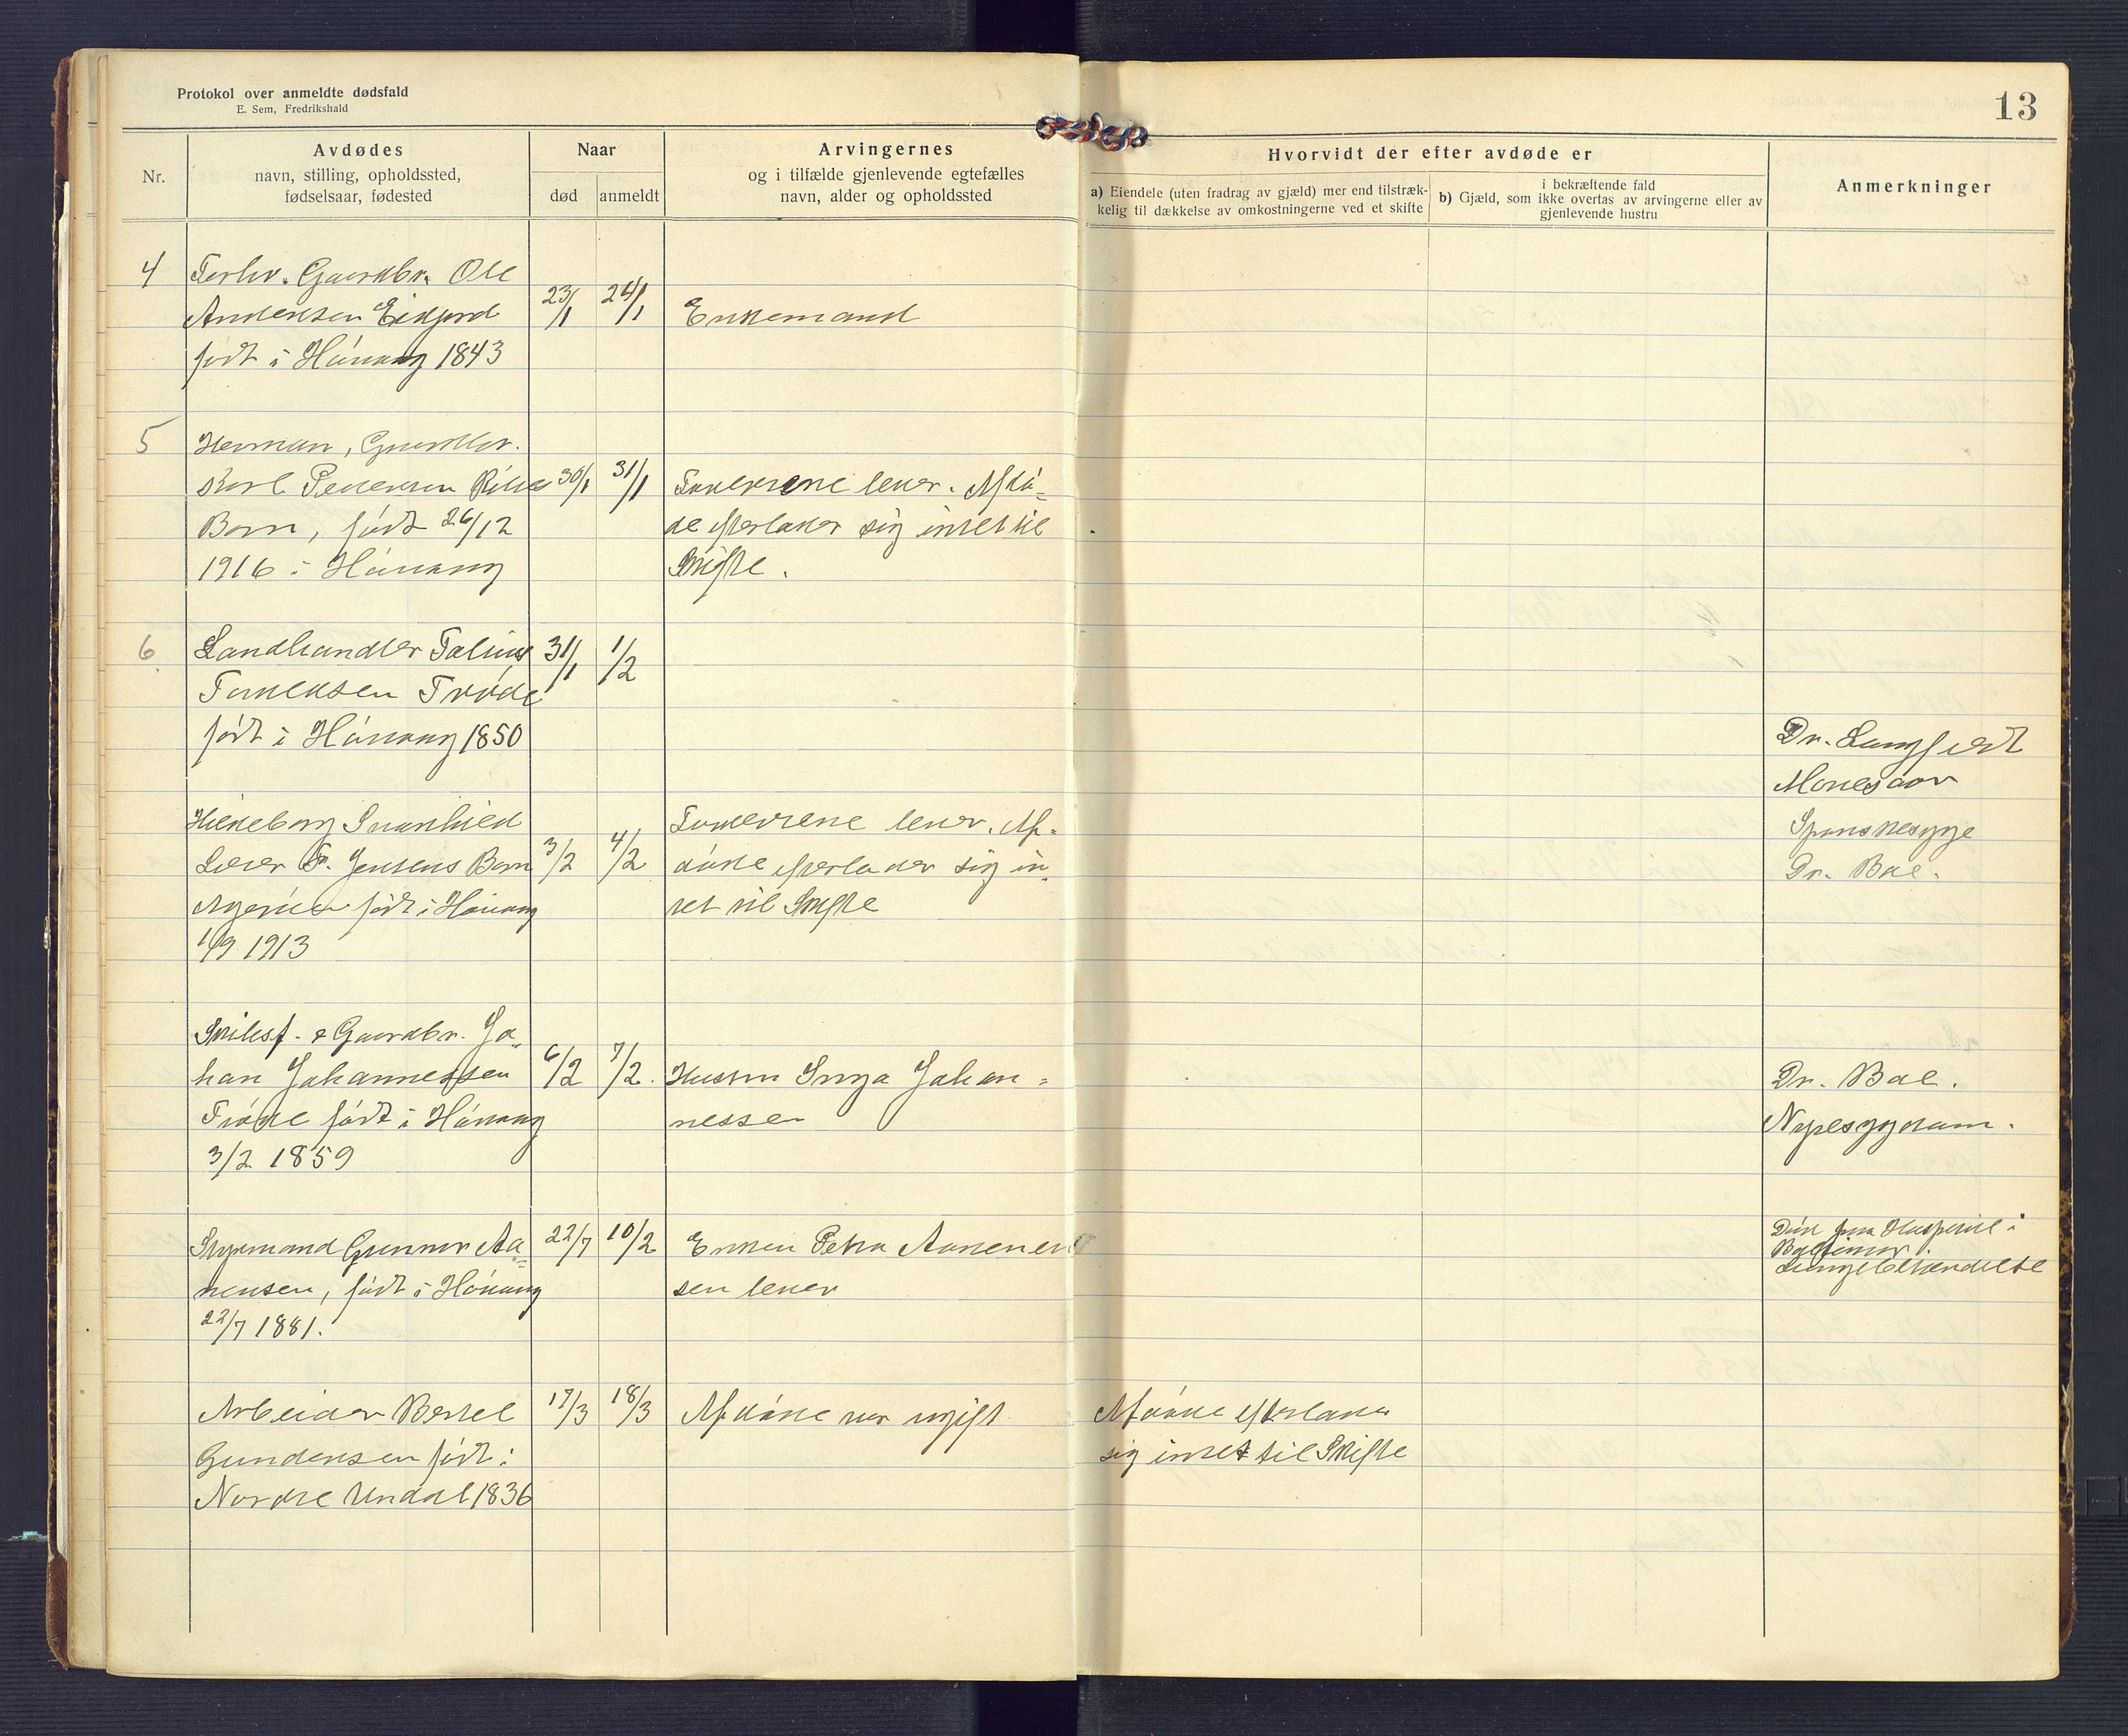 Protokol over anmeldte dødsfald
E. Sem, Fredrikshald
13
Nr.
Avdødes
navn, stilling, opholdssted,
fødselsaar, fødested
Naar
død
anmeldt
Arvingernes
og i tilfælde gjenlevende egtefælles
navn, alder og opholdssted
Hvorvidt der efter avdøde er
a) Eiendele (uten fradrag av gjæld) mer end tilstræk-
kelig til dækkelse av omkostningerne ved et skifte
i bekræftende fald
b) Gjæld, som ikke overtas av arvingerne eller av
gjenlevende hustru
Anmerkninger
4
Forhv. Gaardbr. Ole
Andersen Eikjord
født i Hånæng 1843
23/1
24/1
Enkemand
5
Herman, Gaardbr.
Karl Pedersen
Barn, født 26/12
1916 i Hånæng
30/1
31/1
Forældrene lever. Afdø-
de efterlader sig intet til
Skifte.
6
Landhandler
Tønnesen Trøde
født i Hånæng 1850
31/1
1/2
Dr. Langfeldt
Mavesaar
Hildeborg Svanhild
Lærer T. Jensens Barn
født i Hånæng
1/9 1913
3/2
4/2
Forældrene lever. Af-
døde efterlader sig in-
tet til Skifte
Spanskesyge
Dr. Bae.
Skibsf. & Gaardbr. Jo-
han Johannessen
Trøde født i Hånæng
3/2 1859
6/2
7/2.
Hustru Inga Johan-
nessen
Dr. Bae.
Nyresygdom.
Styrmand Gunnar Aa-
nensen, født i Hånæng
22/7 1881.
22/7
10/2
Enken Petra Aanen
sen lever
Død paa Hospital i
Baltimor.
Lungebetændelse
Arbeider Bertel
Gundersen født i
Nordre Undal 1836
17/3
18/3
Afdøde var ugift
Afdøde efterlader
sig intet til Skifte